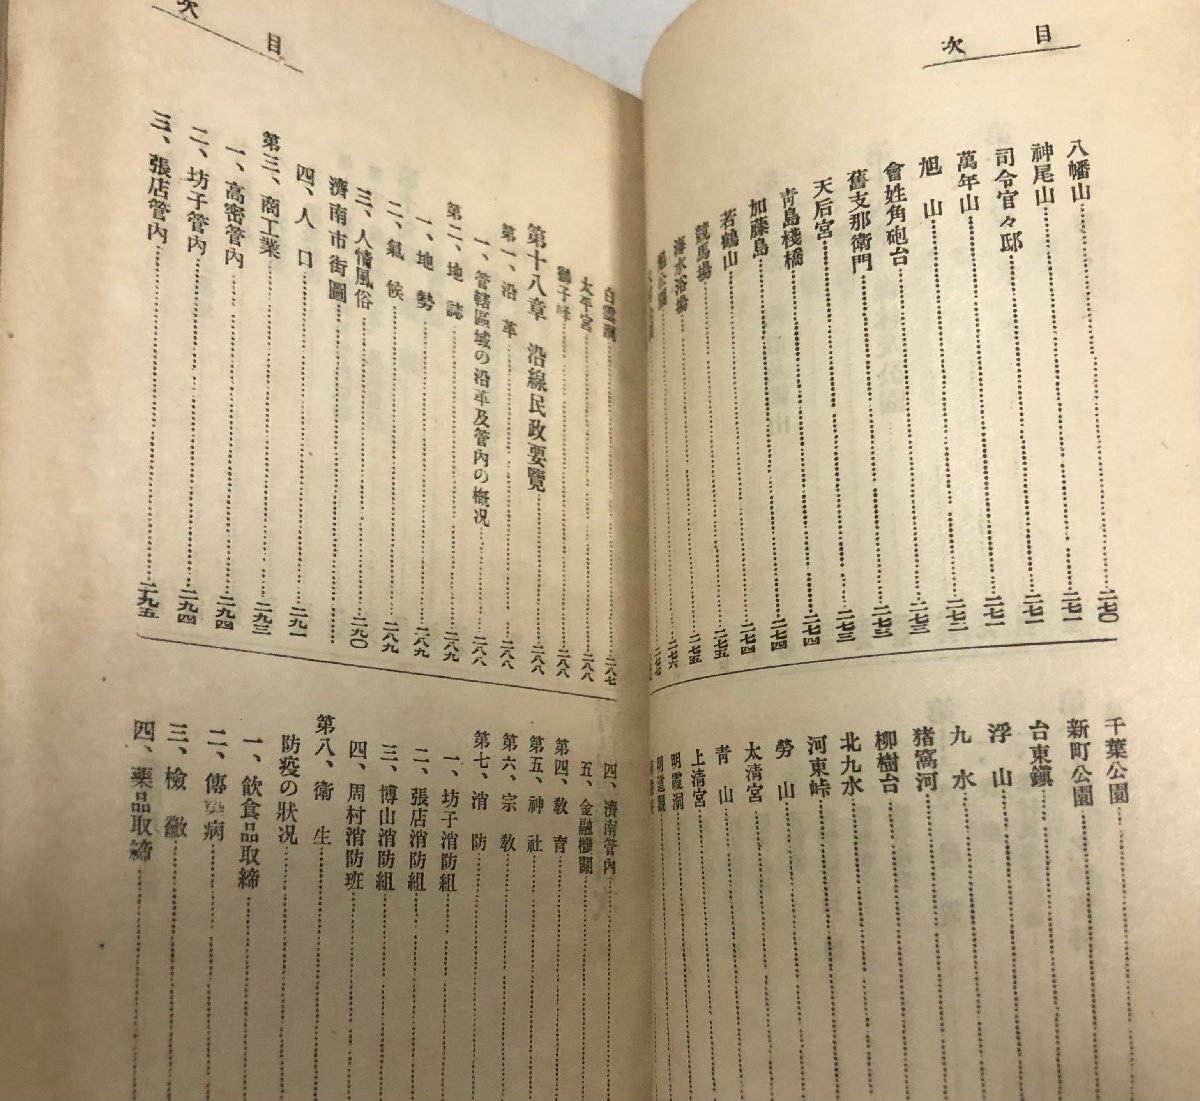 目次
八幡山……二七〇
神尾山……二七一
司令官々邸……二七一
萬年山……二七一
旭山……二七二
會姓角砲台……二七三
舊支那衛門……二七三
天后宮……二七三
青島棧橋……二七四
加藤島……二七四
若鶴山……二七四
競馬場……二七五
海水浴場……二七五
千葉公園……
新町公園……
台東鎭……
浮山……
九水……
猪窩河……
柳樹台……
北九水……
河東峠……
勞山……
太清宮……
青山……
上清宮……
明霞洞……
明道觀……
目次
白雲洞……二八七
太平宮……二八八
獅子峰……二八八
第十八章 沿線民政要覽……二八八
第一、沿革……二八八
一、管轄區域の沿革及管內の槪況……二八八
第二、地誌……二八九
一、地勢……二八九
二、氣候……二八九
三、人情風俗……二九〇
濟南市街圖……
四、人口……二九一
第三、商工業……二九三
一、高密管內……二九四
二、坊子管內……二九四
三、張店管內……二九五
四、濟南管內……
五、金融機關……
第四、敎育……
第五、神社……
第六、宗敎……
第七、消防……
一、坊子消防組……
二、張店消防組……
三、博山消防組……
四、周村消防班……
第八、衛生……
防疫の狀況……
一、飮食品取締……
二、傳染病……
三、檢黴……
四、藥品取締……